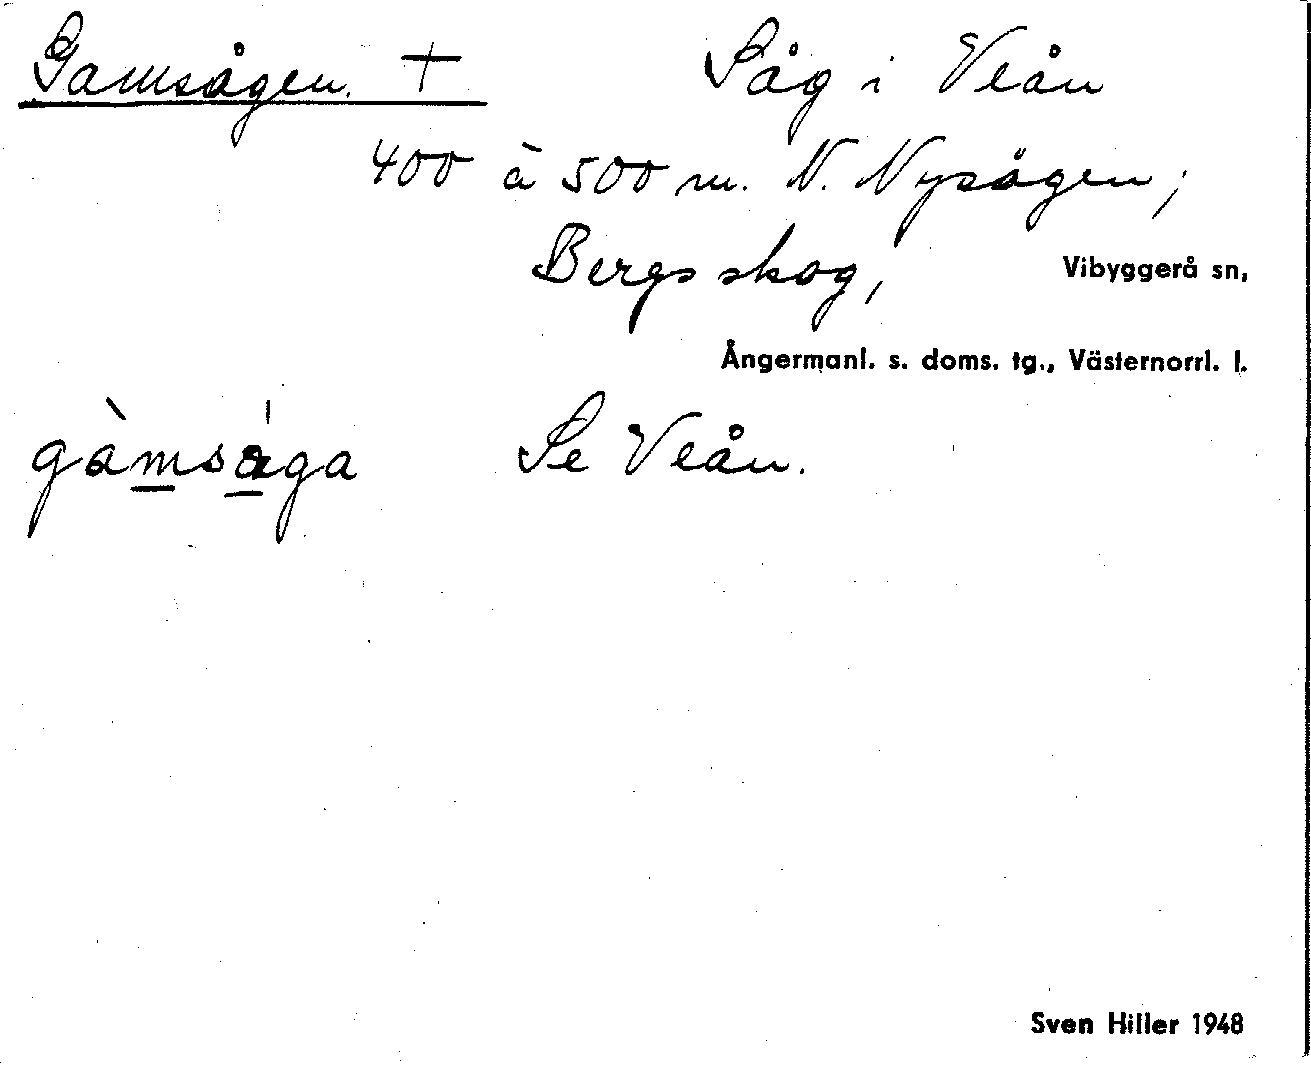 Gamsågen. + Såg i Veån
400 à 500 m. N. Nysågen;
Bergs skog, Vibyggerå sn,
Ångermanl. s. doms. tg., Västernorrl. l.
gàmsåga Se Veån.
Sven Hiller 1948